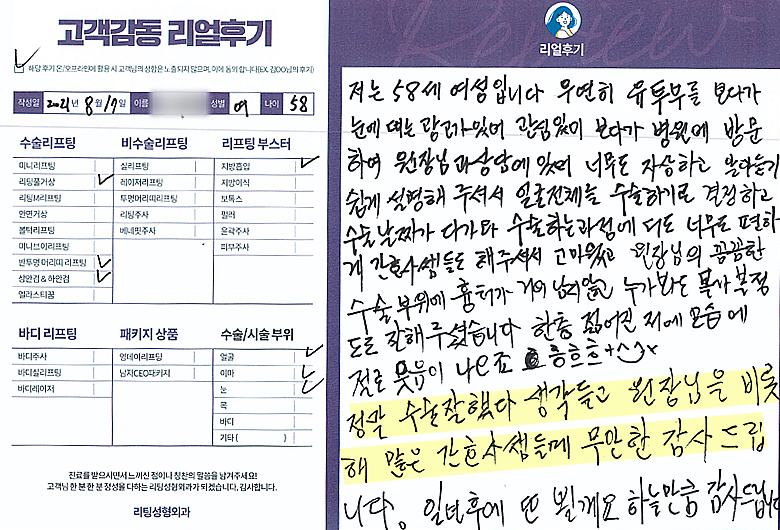 고객감동 리얼후기
해당 후기 온/오프라인에 활용 시 고객님의 성함은 노출되지 않으며, 이에 동의 합니다(EX. 김OO님의 후기)
작성일 2021년 8월 17일 이름 성별 여 나이 58
수술리프팅 비수술리프팅 리프팅 부스터
미니리프팅 실리프팅 지방흡입
리팅풀거상 레이저리프팅 지방이식
리팅M리프팅 투명머리띠리프팅 보톡스
안면거상 리팅주사 필러
볼턱리프팅 베네핏주사 윤곽주사
미니브이리프팅 피부주사
반투명 머리띠 리프팅
상안검 & 하안검
엘라스티꿈
바디 리프팅 패키지 상품 수술/시술 부위
바디주사 엄데이리프팅 얼굴
바디실리프팅 남자CEO패키지 이마
바디레이저 눈
목
바디
기타 ( )
진료를 받으시면서 느끼신 점이나 칭찬의 말씀을 남겨주세요!
고객님 한 분 한 분 정성을 다하는 리팅성형외과가 되겠습니다. 감사합니다.
리팅성형외과
Review
리얼후기
저는 58세 여성입니다 우연히 유투부를 보다가
눈에 띄는 광고가있어 관심있이 보다가 병원에 방문
하여 원장님과상담에있어 너무도 자상하고 알아듣기
쉽게 설명해 주셔서 얼굴전체를 수술하기로 결정하고
수술날짜가 다가와 수술하는과정에 더도 너무도 편하
게 간호사쌤들도 해주셔서 고마웠고 원장님의 꼼꼼한
수술 부위에 흉터가 거의 남지않고 누가봐도 복가 복정
도로 잘해주셨습니다 한층 젊어진 저에 모습에
절로 웃음이 나오죠 흐흐흐+^^+
정말 수술잘했다 생각들고 원장님을 비롯
해 많은 간호사쌤들께 무안한 감사 드립
니다. 일년후에 또 뵐게요 하늘만큼 감사드립니다